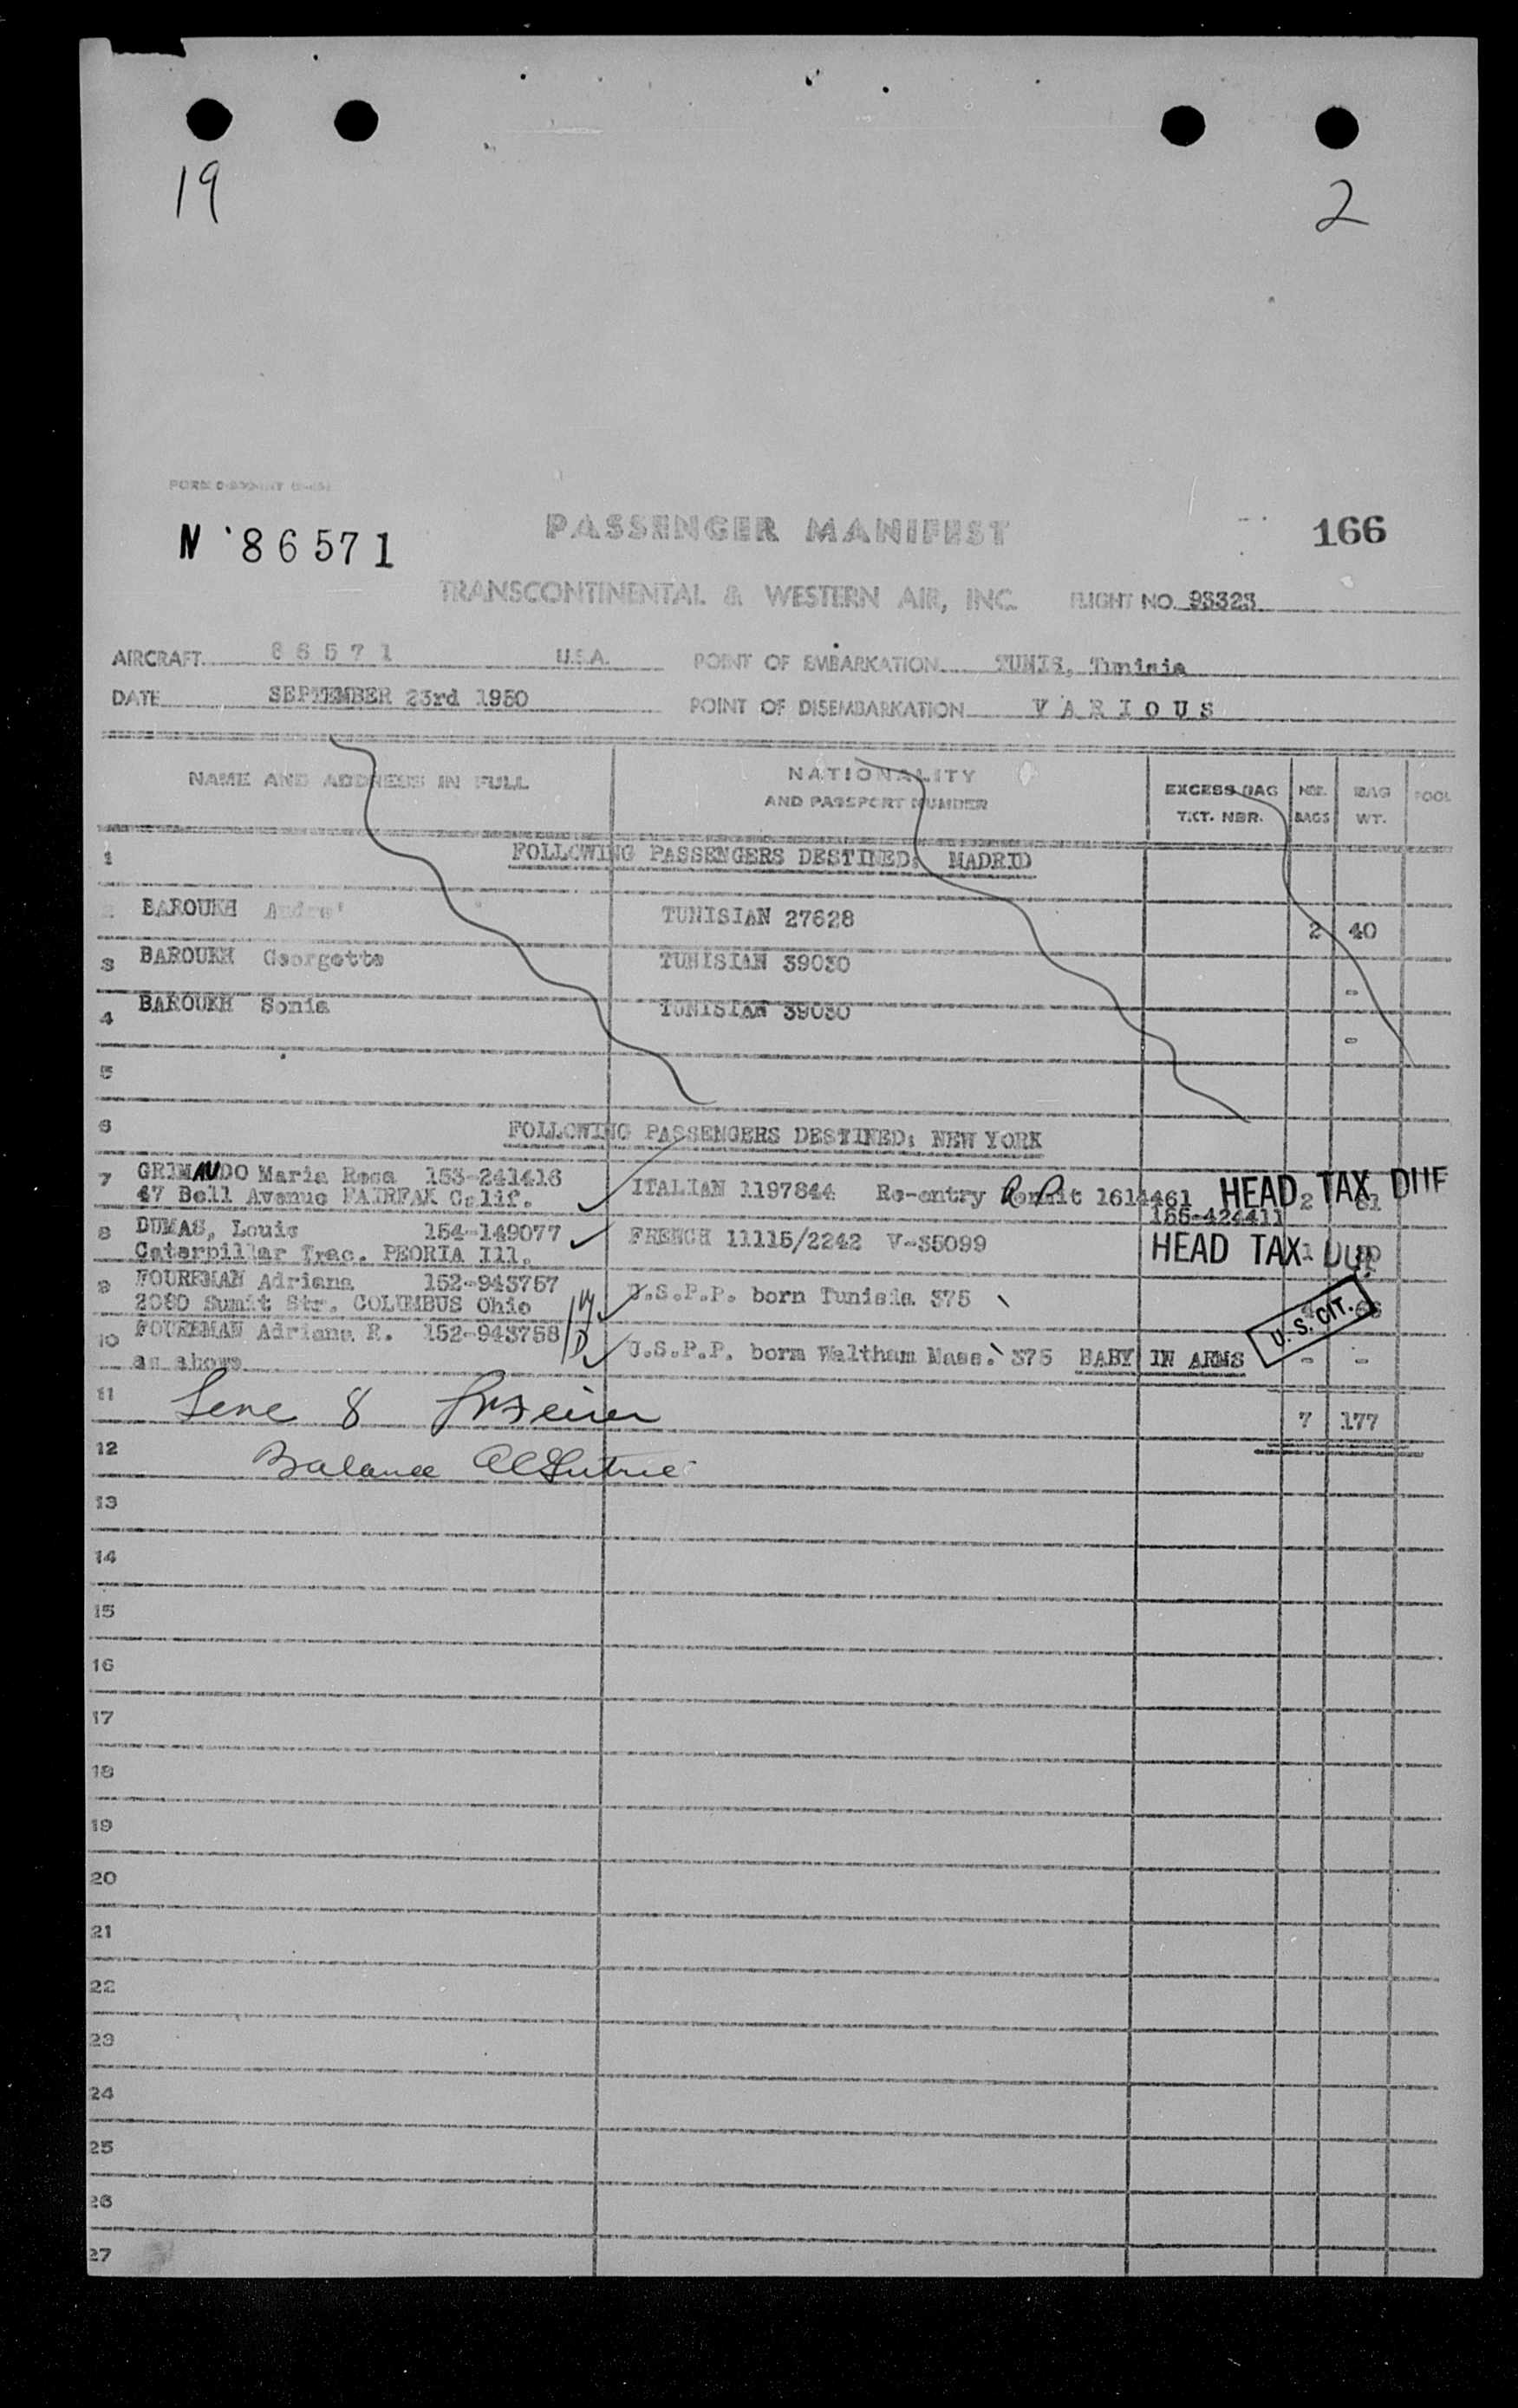 19
2
N 86571
PASSENGER MANIFEST
166
TRANSCONTINENTAL & WESTERN AIR, INC. FLIGHT NO. 93323
AIRCRAFT 86571 U.S.A. POINT OF EMBARKATION TUNIS, Tunisia
DATE SEPTEMBER 23rd 1950 POINT OF DISEMBARKATION VARIOUS
NAME AND ADDRESS IN FULL NATIONALITY AND PASSPORT NUMBER EXCESS BAG TKT. NBR. NBR. BAGS BAG WT. POOL
1 FOLLOWING PASSENGERS DESTINED: MADRID
2 BAROUKH Andre' TUNISIAN 27628 2 40
3 BAROUKH Georgette TUNISIAN 39030 -
4 BAROUKH Sonia TUNISIAN 39030 -
5
6 FOLLOWING PASSENGERS DESTINED: NEW YORK
7 GRIMAUDO Maria Rosa 153-241416 ITALIAN 1197844 Re-entry Permit 1614461 HEAD TAX DUE 2
47 Bell Avenue FAIRFAX Calif. 155-424411
8 DUMAS, Louis 154-149077 FRENCH 11115/2242 V-35099 HEAD TAX DUE 1
Caterpillar Trac. PEORIA Ill.
9 FOUREMAN Adriana 152-943757 U.S.P.P. born Tunisia 375
2080 Sumit Str. COLUMBUS Ohio
U.S. CIT.
10 FOUREMAN Adriana R. 152-943758 U.S.P.P. born Waltham Mass. 375 BABY IN ARMS - -
as above
11 7 177
12 Balance
13
14
15
16
17
18
19
20
21
22
23
24
25
26
27